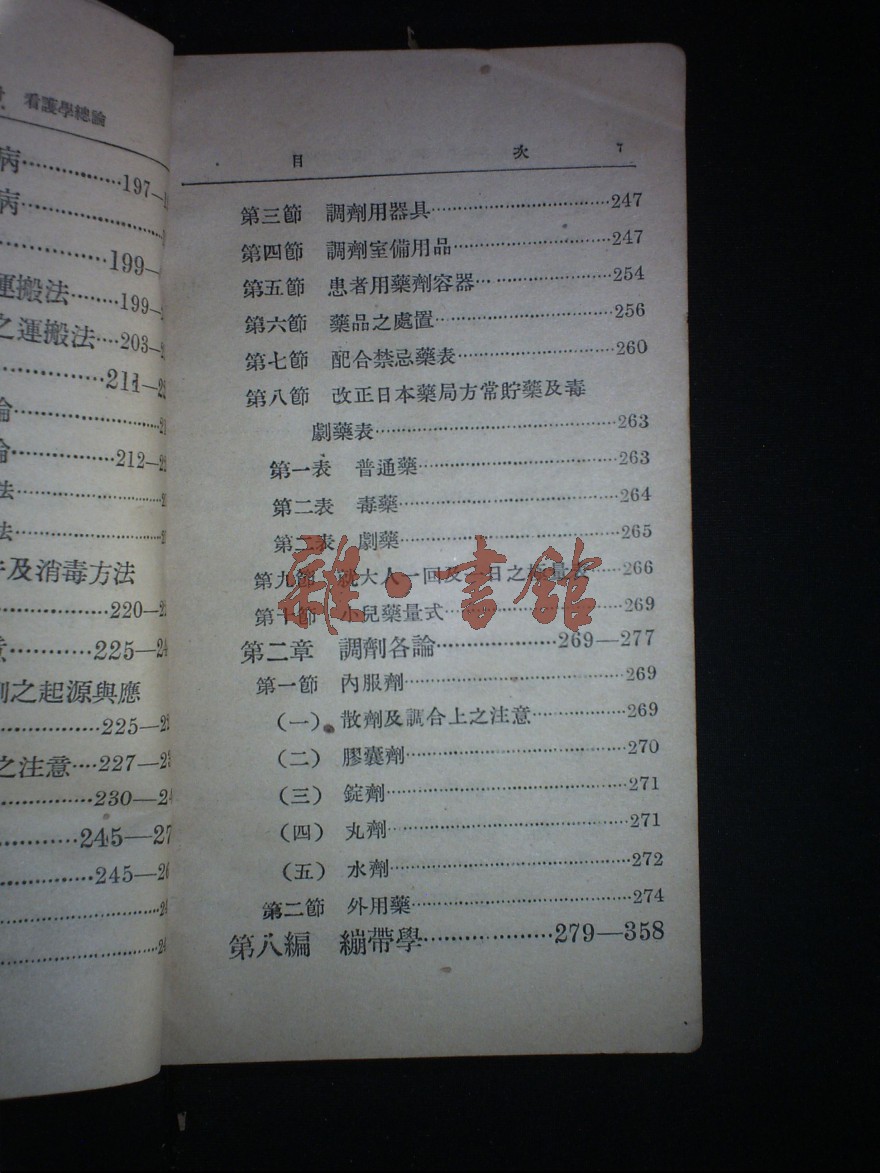 看護學總論
病……………197—
病……………
……………199—
運搬法………199—
之運搬法…203—2
……………211—2
論……………
論……………212—2
法……………
法……………
及消毒方法
……………220—2
意…………225—24
之起源與應
……………225—2
之注意…227—2
……………230—2
……………245—27
……………245—2
目 次 7
第三節 調劑用器具……………247
第四節 調劑室備用品……………247
第五節 患者用藥劑容器……………254
第六節 藥品之處置……………256
第七節 配合禁忌藥表……………260
第八節 改正日本藥局方常貯藥及毒
劇藥表……………263
第一表 普通藥……………263
第二表 毒藥……………264
第二表 劇藥……………265
第九節 就大人一回及一日之極量表…266
第十節 小兒藥量式……………269
第二章 調劑各論……………269—277
第一節 內服劑……………269
(一) 散劑及調合上之注意……………269
(二) 膠囊劑……………270
(三) 錠劑……………271
(四) 丸劑……………271
(五) 水劑……………272
第二節 外用藥……………274
第八編 繃帶學……………279—358
雜·書館